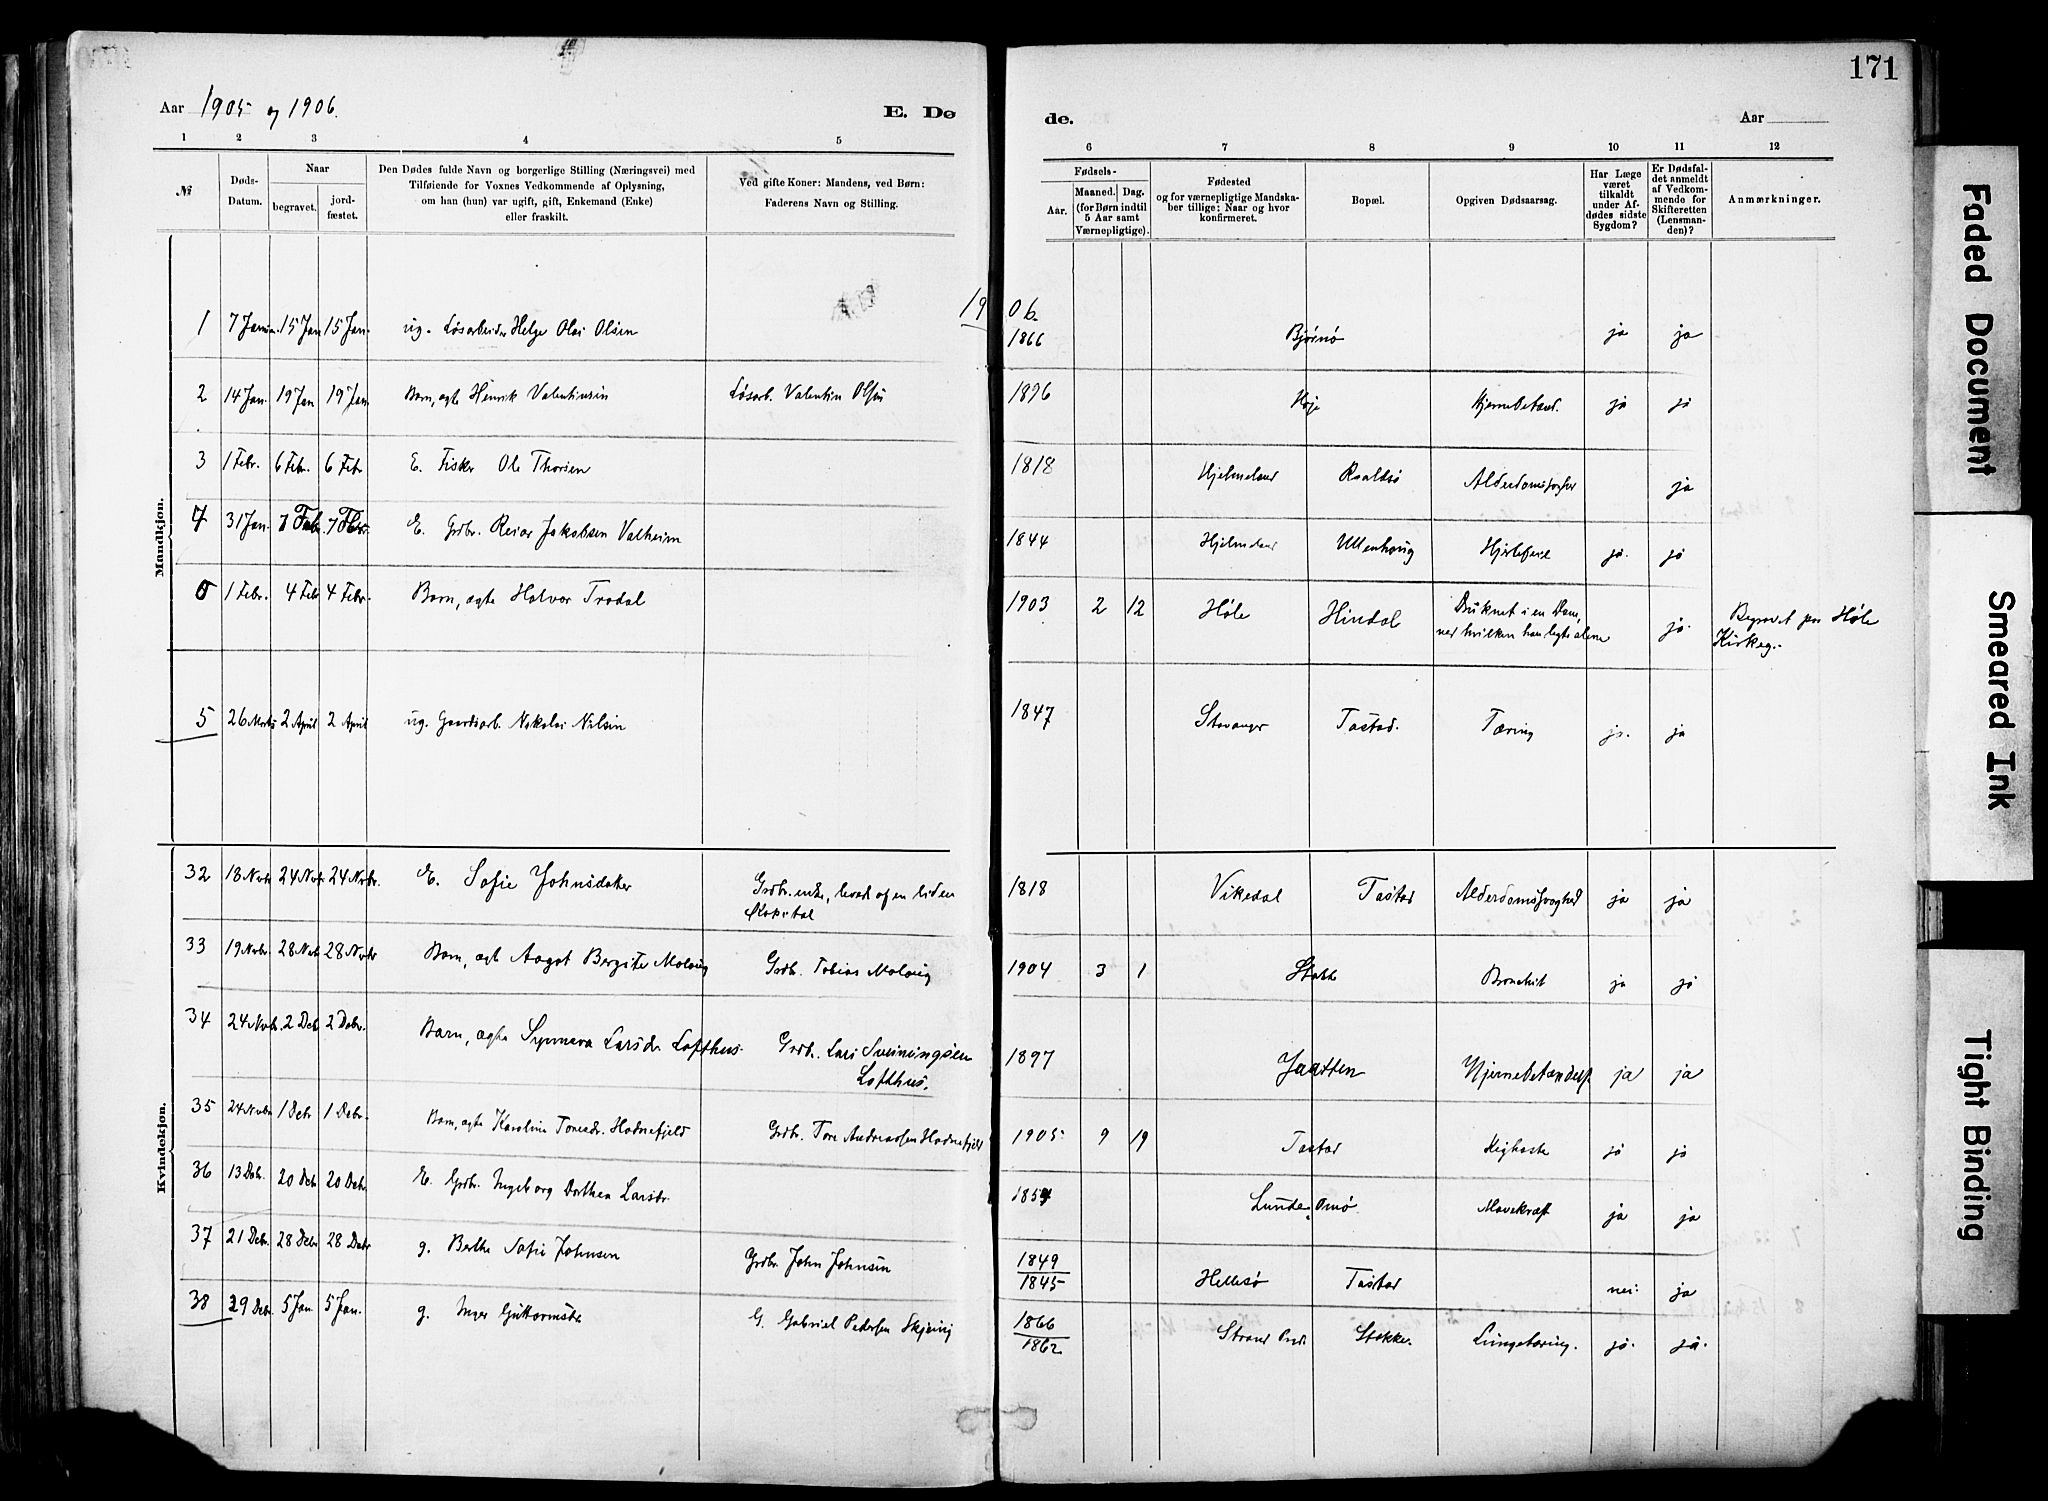 171
Aar 1905 og 1906.
E. Dø
de.
Aar
1 2 3 4 5 6 7 8 9 10 11 12
№
Døds-
Datum.
Naar
begravet.
jord-
fæstet.
Den Dødes fulde Navn og borgerlige Stilling (Næringsvei) med
Tilføiende for Voxnes Vedkommende af Oplysning,
om han (hun) var ugift, gift, Enkemand (Enke)
eller fraskilt.
Ved gifte Koner: Mandens, ved Børn:
Faderens Navn og Stilling.
Fødsels-
Aar.
Maaned. Dag.
(for Børn indtil
5 Aar samt
Værnepligtige).
Fødested
og for værnepligtige Mandska-
ber tillige: Naar og hvor
konfirmeret.
Bopæl.
Opgiven Dødsaarsag.
Har Læge
været
tilkaldt
under Af-
dødes sidste
Sygdom?
Er Dødsfal-
det anmeldt
af Vedkom-
mende for
Skifteretten
(Lensman-
den)?
Anmærkninger.
Mandkjøn.
1906
1 7 Januar. 15 Jan 15 Jan. ug. Løsarbeider Helge Olai Olsen 1866 Bjørnø ja ja
2 14 Jan. 19 Jan 19 Jan Barn, ægte Henrik Valentinsen Løsarb. Valentin Olsen 1896 Hjernebetænd. ja ja
3 1 Febr. 6 Febr. 6 Febr E. Fisker Ole Thorsen 1818 Hjelmeland Alderdomssvaghed ja
4 31 Jan. 7 Febr. 7 Febr. E. Grdbr. Reiar Jakobsen Valheim 1844 Hjelmeland Ullenhaug Hjertefeil ja. ja
1 Febr. 4 Febr 4 Febr. Barn, ægte Halvor Trodal 1903 2 12 Høle Hindal Druknet i en Dam,
ved hvilken han legte alene ja. Begravet paa Høle
Kirkeg.
5 26 Marts 2 April 2 April ug. Gaardsarb. Nikolai Nilsen 1847 Stavanger Tastad. Tæring ja. ja
Kvindekjøn.
32 18 Novbr 24 Novbr 24 Novbr. E. Sofie Johnsdatter Grdbr. enke, levede af en liden
Kapital 1818 Vikedal Tastad Alderdomssvaghed ja ja
33 19 Novbr. 28 Novbr 28 Novbr Barn, ægte Aagot Bergite Molaug Grdb. Tobias Molaug 1904 3 1 Bronchit ja ja
34 24 Novbr. 2 Debr. 2 Debr. Barn, ægte Synneva Larsdr. Lofthus. Grdbr. Lars Sveinungsen
Lofthus. 1897 Jaatten Hjernebetændelse ja ja
35 24 Novbr 1 Debr 1 Debr. Barn, ægte Karoline Toresdr. Hodnefjeld Grdbr. Tore Andreassen Hodnefjeld 1905 9 19 Tastad Kighoste ja ja
36 13 Debr. 20 Debr 20 Debr E. Grdbr. Ingeborg Dorthea Larsdr. 1854 Lunde, Omø Mavekræft ja ja
37 21 Debr. 28 Debr 28 Debr g. Berthe Sofie Johnsen Grdbr. John Johnsen 1849
1845 Hellesø Tastad nei. ja
38 29 Debr. 5 Jan 5 Jan. g. Inger Guttormsdr G. Gabriel Pedersen Skjæveig 1866
1862 Strand Stokke. Lungetæring. ja. ja.
Faded Document
Smeared Ink
Tight Binding